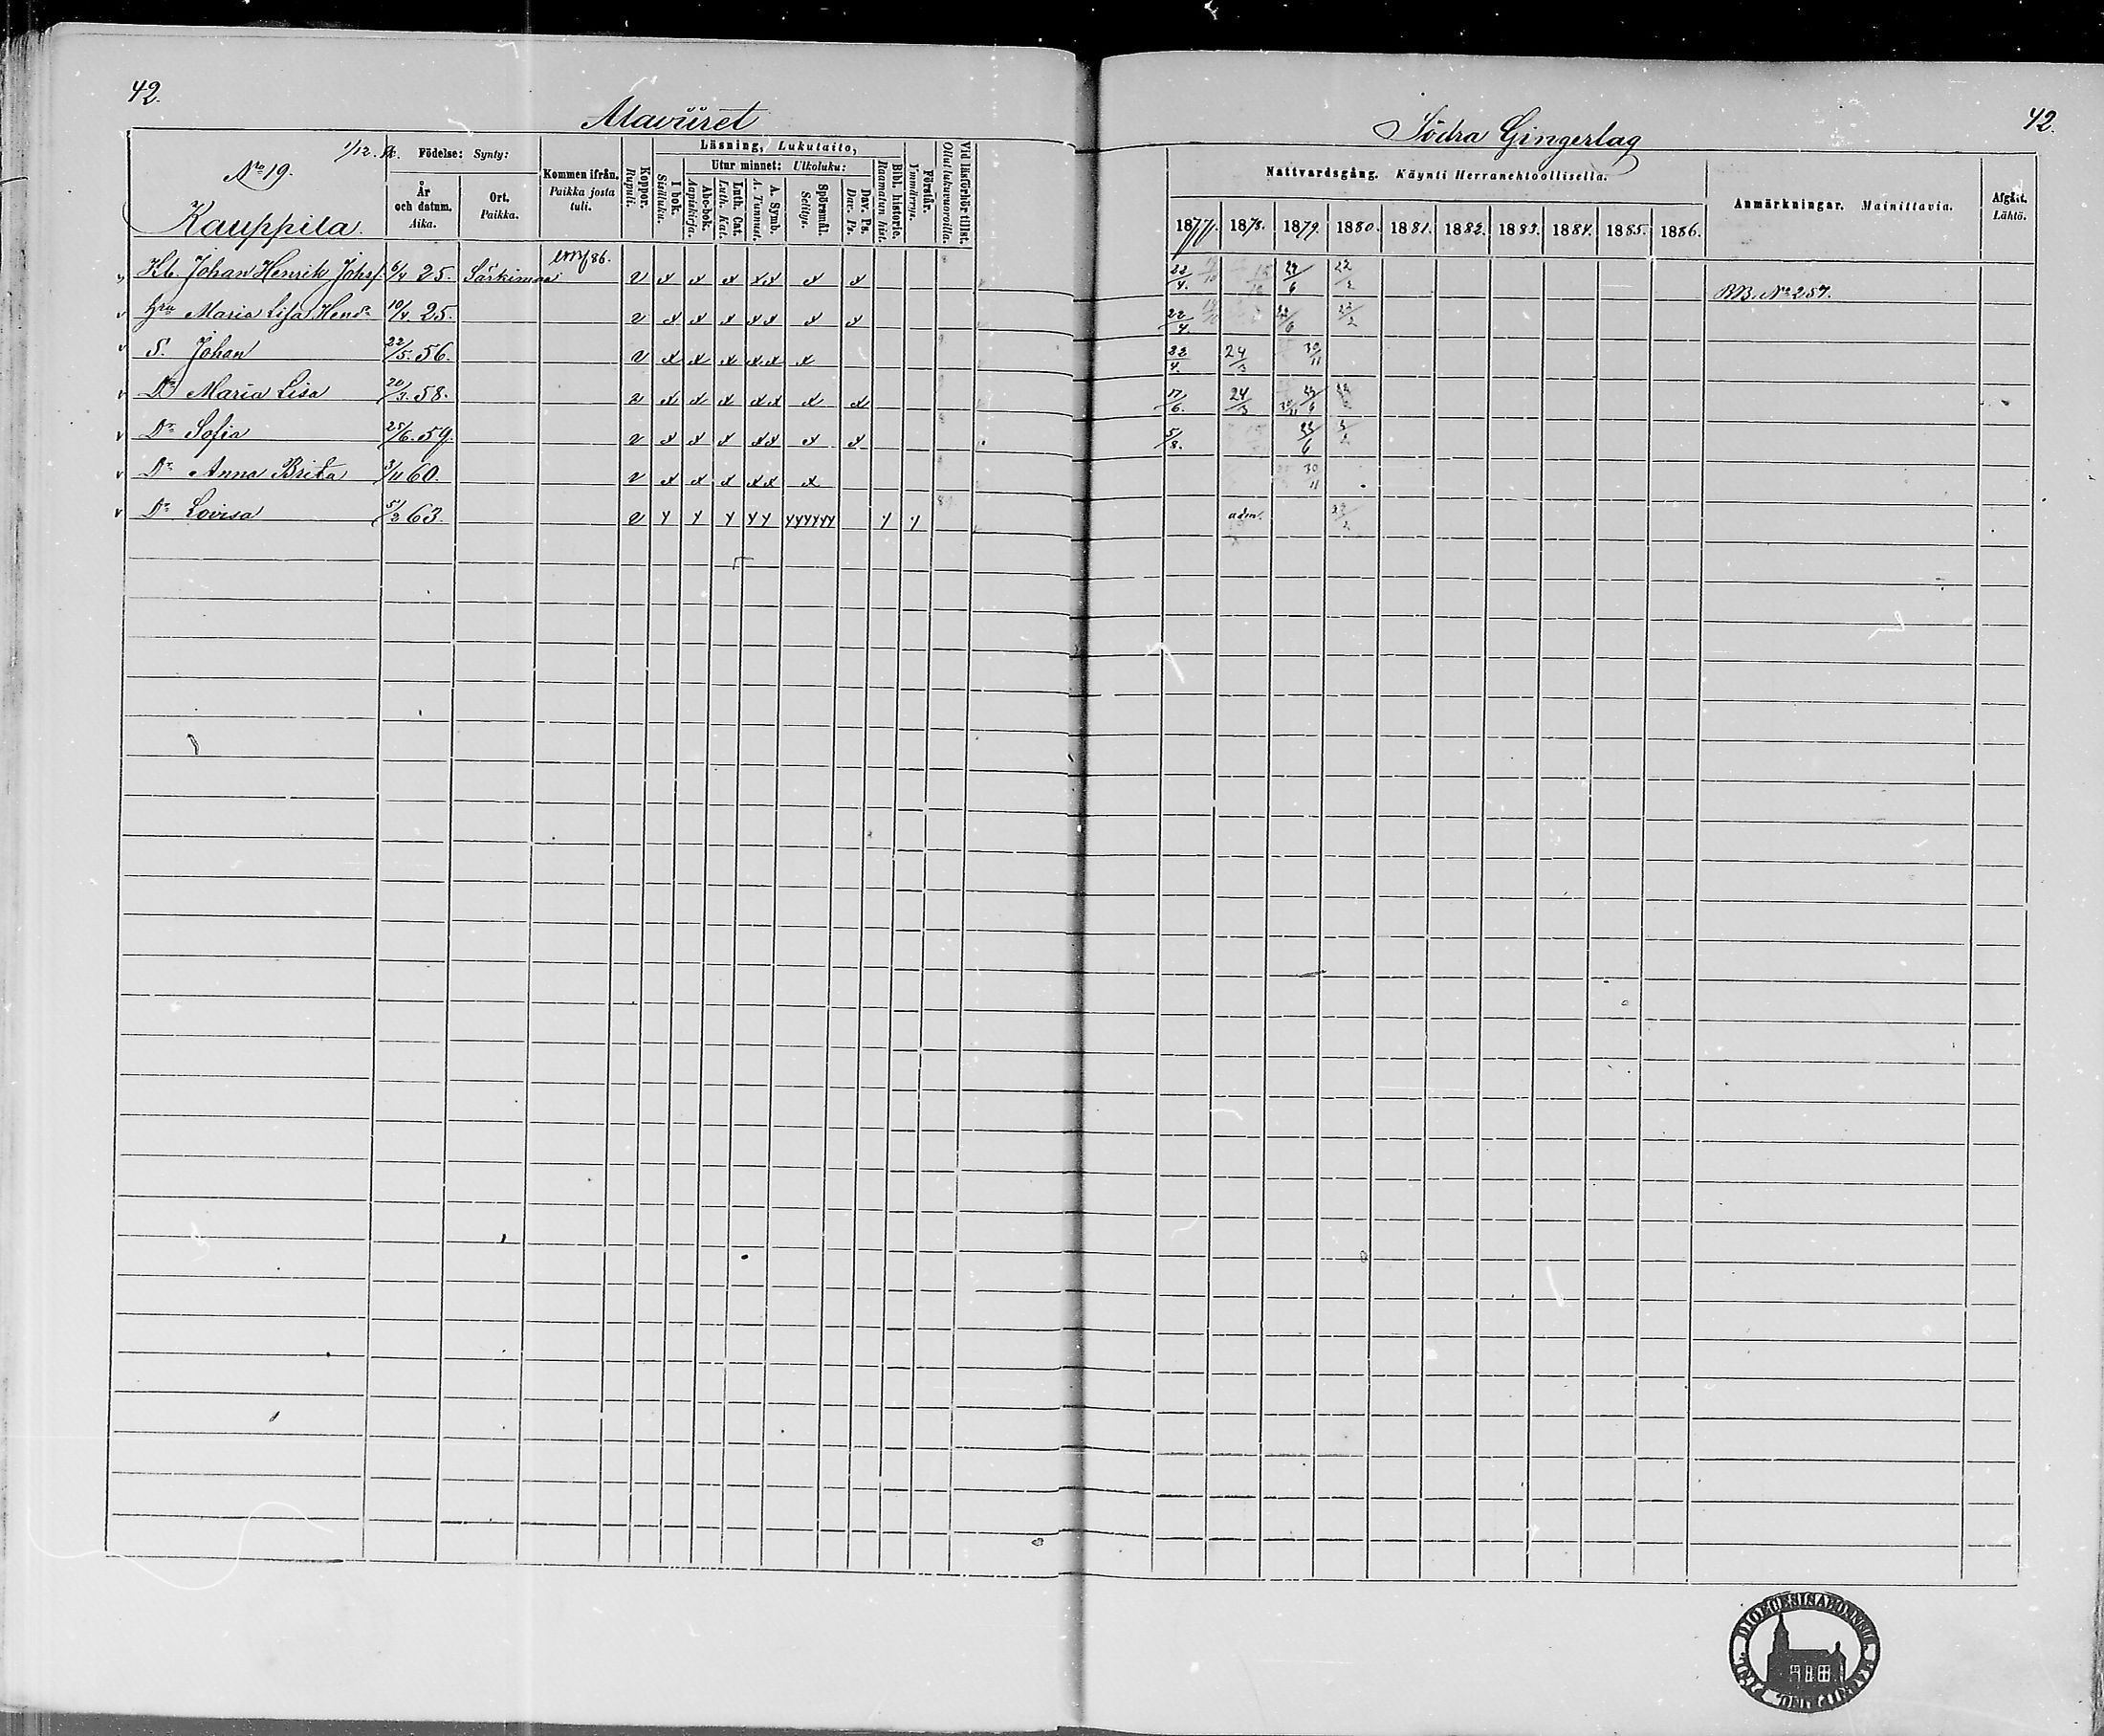 42.
Alavüret
Södra Gingerlag
42.
No 19.
1/12.
Kauppila.
Födelse: Synty:
År och datum. Aika.
Ort. Paikka.
Kommen ifrån. Paikka josta tuli.
Koppor. Rupuli.
Läsning, Lukutaito,
I bok. Sisäluku.
Utur minnet: Ulkoluku:
Abc-bok. Aapiskirja.
Luth. Cat. Luth. Kat.
A. Symb. A. Tunnust.
Spörsmål. Selitys.
Dav. Ps. Dav. Ps.
Bibl. historie. Raamatun hist.
Förstår. Ymmärrys.
Vid läsförhör tillst. Ollut lukuvuoroilla.
Nattvardsgång. Käynti Herranehtoollisella.
1877. 1878. 1879. 1880. 1881. 1882. 1883. 1884. 1885. 1886.
Anmärkningar. Mainittavia.
Afgått. Lähtö.
Johan Henrik Johsf. 6/4 25. Särkimaa 86. v x x x xx x x 22/4. 24/6 22/2 BB. No 257.
Hru Maria Lisa Hend. 10/4. 25. v x x x xx x x 22/4. 22/2
S. Johan 22/5. 56. v x x x xx x 22/4. 24/3 30/11
Dr Maria Lisa 20/3. 58. v x x x xx x x 17/6. 24/3
Dr Sofia 25/6. 59. v x x x xx x x 5/8.
Dr Anna Brita 3/11 60. v x x x xx x 30/11
Dr Lovisa 5/3 63. v y y y yy yyyyyy y y adm.